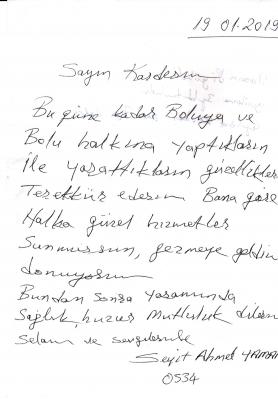 19 01-2019
Sayın Kardeşim
Bu güne kadar Boluya ve
Bolu halkına yaptıkların
İle yarattıkların güzellikler
Teşekkür ederim Bana göre
Halka güzel hizmetler
Sunmuşsun, gezmeye geldim
dönüyorum
Bundan sonra yaşamında
Sağlık, huzur mutluluk dilerim
selam ve sevgilerimle
Seyit Ahmet YAMAN
0534